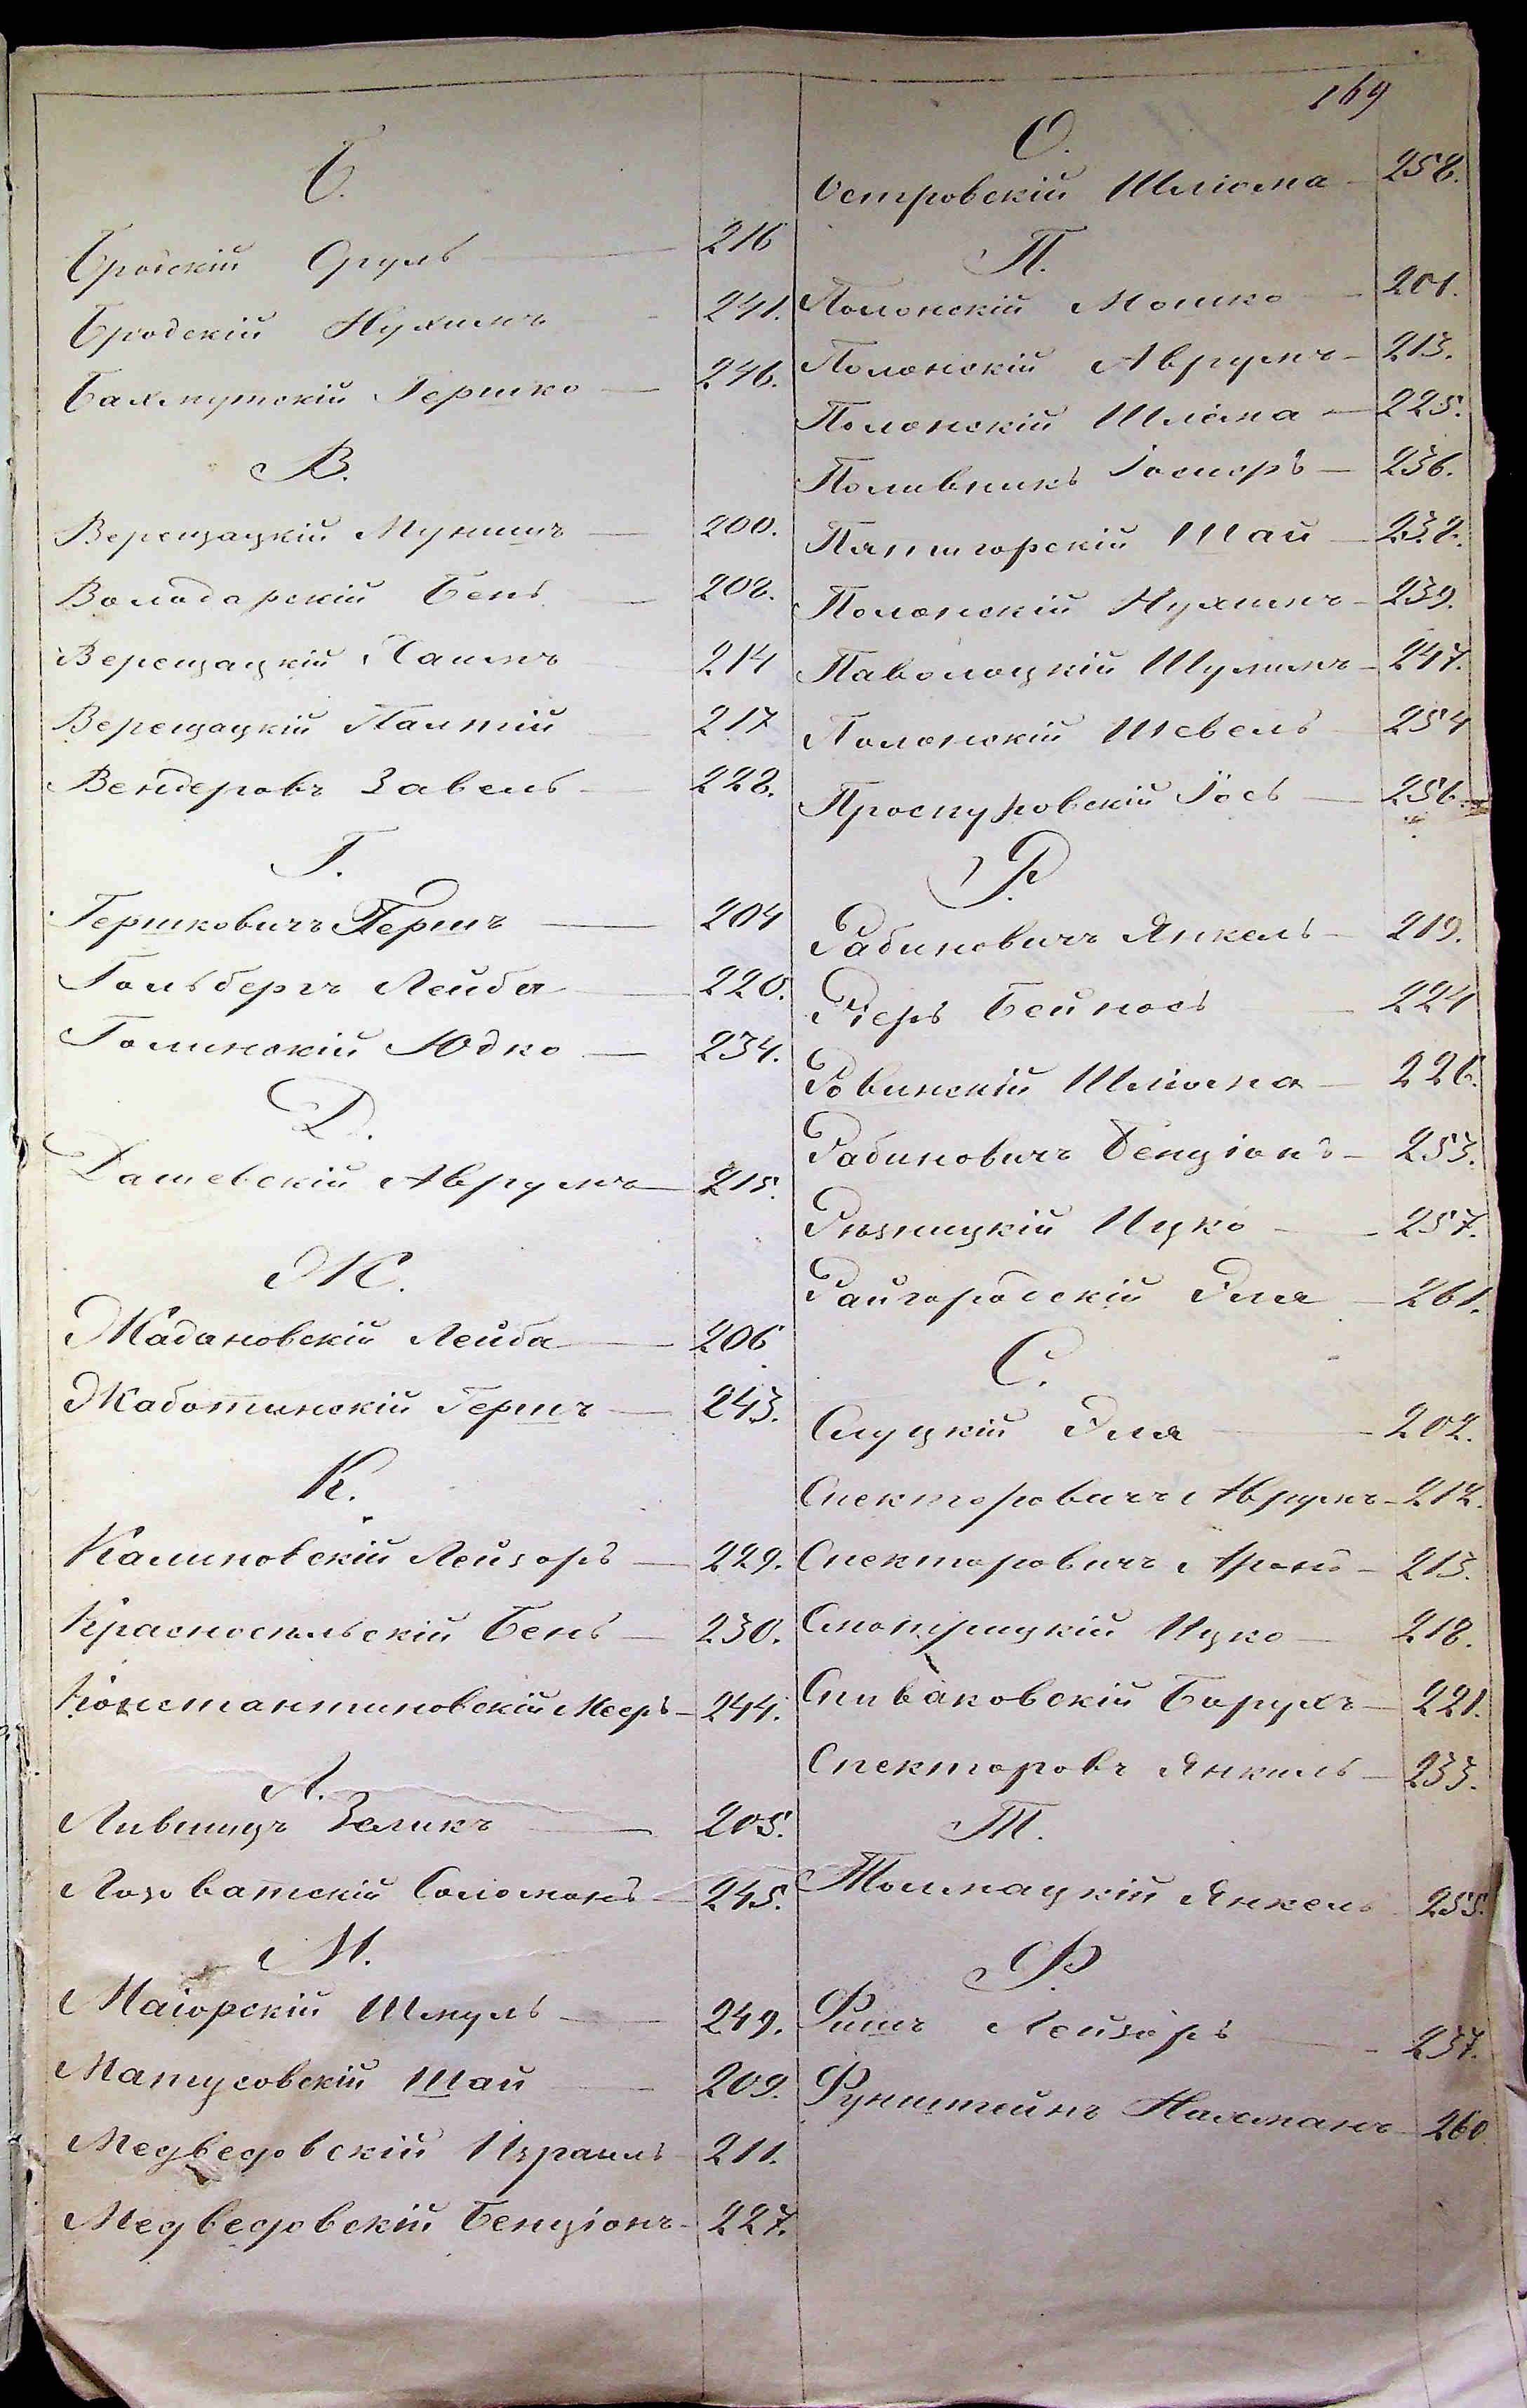 169
Б.
Бродскій Сруль 216
Бродскій Нухимъ 241.
Бахмутскій Гершко 246.
В.
Верещацкій Мунишъ 200.
Володарскій Бень 208.
Верещацкій Хаимъ 214
Верещацкій Палтій 217
Вендеровъ Завель 228.
Г.
Гершковичъ Гершъ 204
Гольбергъ Лейба 220.
Голинскій Юдко 234.
Д.
Дашевскій Аврумъ 215.
Ж.
Жадановскій Лейба 206
Жаботинскій Гершъ 243.
К.
Калиновскій Лейзоръ 229.
Краснопольскій Бень 230.
Константиновскій Мееръ 244.
Л.
Лившицъ Зеликъ 205.
Лозоватскій Соломонъ 245.
М.
Маіорскій Шмуль 249.
Матусовскій Шай 209.
Медведовскій Израиль 211.
Медведовскій Бенціонъ 227.
О.
Островскій Шліома 258.
П.
Полонскій Мошко 201.
Полонскій Аврумъ 213.
Полонскій Шліома 225.
Поливникъ 236.
Пятигорскій Шай 238.
Полонскій Нухимъ 239.
Паволоцкій Шулимъ 247.
Полонскій Шевель 254
Проскуровскій Іось 256.
Р.
Рабиновичъ Янкель 219.
Бейносъ 224
Ровинскій Шліома 226.
Рабиновичъ Бенціонъ 253.
Рѣзницкій Ицко 257.
Райгородскій Эля 261.
С.
Слуцкій Эля 202.
Спекторовичъ Аврумъ 212.
Спекторовичъ Аронъ 213.
Смотрицкій Ицко 218.
Спиваковскій Барухъ 221.
Спекторовъ Янкиль 233.
Т.
Толмацкій Янкель 255.
Ф.
Фишъ Лейзоръ 237.
Фунштейнъ Нахманъ 260